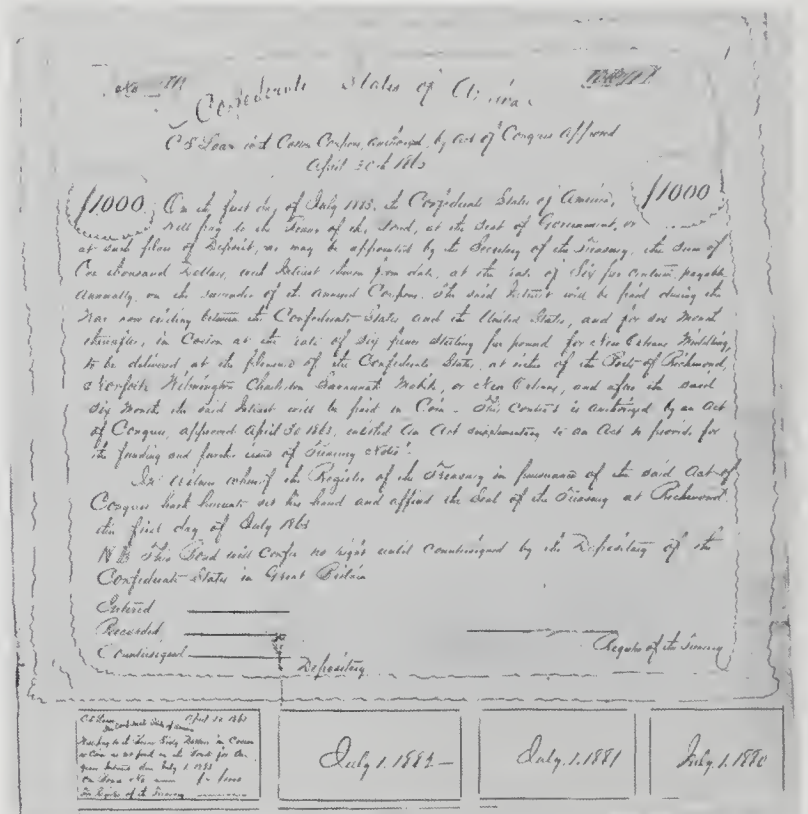 No
Confederate States of America
C S Loan with Cotton Coupons, authorized, by Act of Congress Approved
April 30th 1863
$1000
$1000
On the first day of July 1883, the Confederate States of America,
will pay to the Bearer of this Bond, at the Seat of Government, or
at such places of Deposit, as may be appointed by the Secretary of the Treasury, the Sum of
One thousand Dollars, with Interest thereon from date, at the rate of Six per centum, payable
Annually, on the surrender of the annexed Coupons. The said Interest will be paid during the
War now existing between the Confederate States and the United States, and for six Months
thereafter, in Cotton at the rate of Six pence Sterling per pound for New Orleans Middling,
to be delivered at the pleasure of the Confederate States, at either of the Ports of Richmond,
Norfolk Wilmington Charleston Savannah Mobile, or New Orleans, and after the said
Six Months the said Interest will be paid in Coin - This Contract is authorized by an Act
of Congress, approved April 30 1863, entitled An Act supplementary to an Act to provide for
the funding and further issue of Treasury Notes.
In witness whereof the Register of the Treasury in pursuance of the said Act of
Congress hath hereunto set his hand and affixed the Seal of the Treasury at Richmond
this first day of July 1863
N B This Bond will confer no right until Countersigned by the Depositary of the
Confederate States in Great Britain
Entered
Recorded
Countersigned
Depositary
Register of the Treasury
C S Loan April 30 1863
The Confederate States of America
will pay to the Bearer Sixty Dollars in Cotton
or Coin as set forth in the Bond for One
years Interest due July 1 1883
on Bond No $1000
For Register of the Treasury
July 1. 1882
July 1. 1881
July 1. 1880